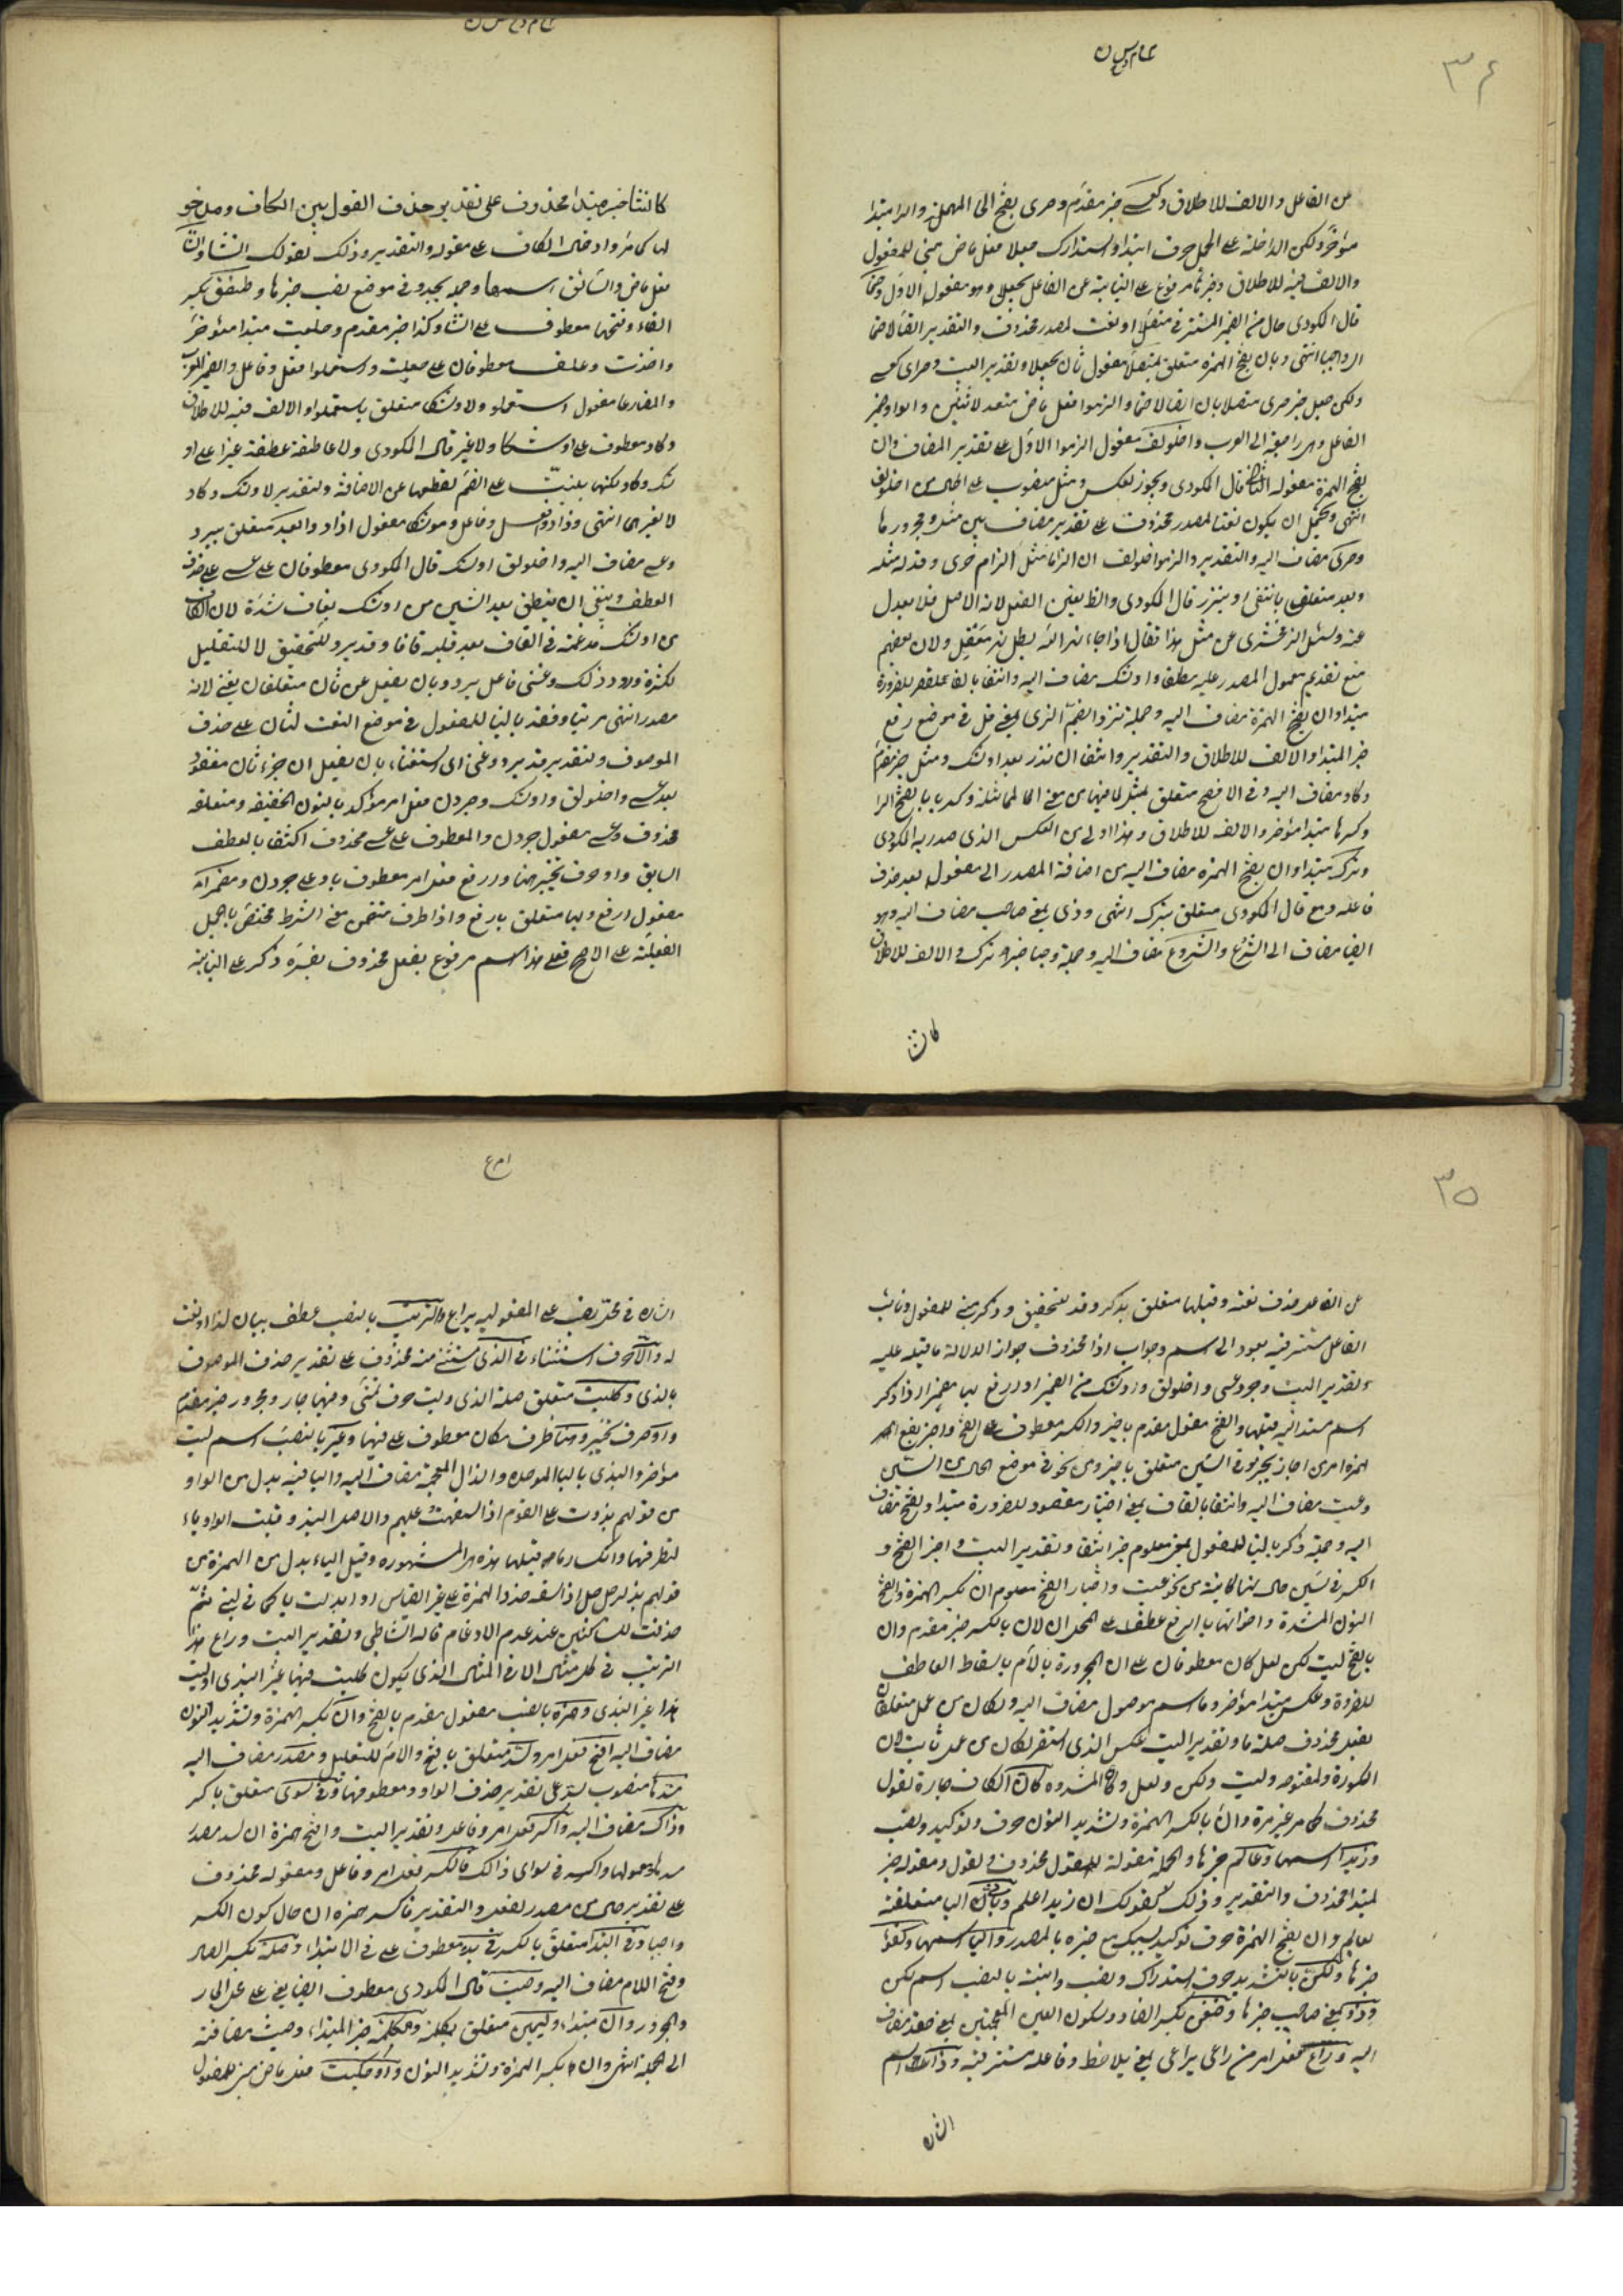 ٣٤
عن الفاعل والالف للاطلاق وكعسى خبر مقدم وحرى بفتح الحا المهملة والرا مبتدا
مؤخر ولكن الداخلة على الجمل حرف ابتدا واستدراك جعلا فعل ماض مبنى للمفعول
والالف فيه للاطلاق وخبرها مرفوع على النيابة عن الفاعل بجعلا وهو مفعوله الاول وحتما
قال المكودى حال من الضمير المستتر فى متصلا او نعت لمصدر محذوف والتقدير اتصالا حتما
اى واجبا انتهى وبان بفتح الهمزة متعلق بمتصلا مفعول ثان بجعلا وتقدير البيت وحرى كعسى
ولكن جعل خبر حرى متصلا بان اتصالا حتما والزموا فعل ماض متعد لاثنين والواو ضمير
الفاعل وهى راجعة الى العرب واخلولق مفعول الزموا الاول على تقدير المضاف وان
بفتح الهمزة مفعوله الثانى قال المكودى ويجوز العكس ومثل منصوب على الحال من اخلولق
انتهى ويحتمل ان يكون نعتا لمصدر محذوف على تقدير مضاف بين مثل ومجرورها
وحرى مضاف اليه والتقدير والزموا اخلولق ان الزاما مثل الزام حرى وقد له مثله
وبعد متعلق بانتفى او بنزر قال المكودى
عنه وسئل الزمخشرى عن مثل هذا فقال اذا جاء نهر الله بطل نهر معقل ولان بعضهم
منع تقديم معمول المصدر عليه مطلقا واوشك مضاف اليه وانتفا بالفاء مقصور للضرورة
مبتدا وان بفتح الهمزة مضاف اليه وجملة نزرا بضم الزاى بمعنى قل فى موضع رفع
خبر المبتدا والالف للاطلاق والتقدير وانتفا ان نزر بعد اوشك ومثل خبر مقدم
وكاد مضاف اليه وفى الاصح متعلق بمثل لما فيها من معنى المماثلة وكربا بفتح الرا
وكسرها مبتدا مؤخر والالف للاطلاق وهذا اولى من العكس الذى صدر به المكودى
وترك مبتدا وان بفتح الهمزة مضاف اليه من اضافة المصدر الى مفعوله بعد حذف
فاعله ومع قال المكودى متعلق بترك انتهى وذى بمعنى صاحب مضاف اليه وهو
ايضا مضاف الى الشروع والشروع مضاف اليه وجملة وجبا خبر ترك والالف للاطلاق
كانشا
كانشا خبر مبتدا محذوف على تقدير حذف القول بين الكاف ومدخو
لها كما مر او ادخال الكاف على مقوله والتقدير وذلك كقولك انشا وانشا
فعل ماض والسائق اسمها وجملة يحدو فى موضع نصب خبرها وطفق بكسر
الفاء وفتحها معطوف على انشا وكذا خبر مقدم وجعلت مبتدا مؤخر
واخذت وعلقت معطوفان على جعلت واستعملوا فعل وفاعل والضمير للعرب
والمضارعا مفعول استعملوا ولاوشكا متعلق باستعملوا والالف فيه للاطلاق
وكاد معطوف على اوشكا ولا غير قال المكودى ولا عاطفة عطفت غير على او
شك وكاد ولكنها بنيت على الضم لقطعها عن الاضافة والتقدير لاوشك وكاد
لا لغيرهما انتهى وزادوا فعل وفاعل وموشكا مفعول زادوا وبعد متعلق بيرد
وعسى مضاف اليه واخلولق اوشك قال المكودى معطوفان على عسى على حذف
العطف وينبغى ان ينطق بعد الشين من اوشك بقاف مشددة لان الكاف
من اوشك مدغمة فى القاف بعد قلبه قافا وقد يرد للتحقيق لا للتقليل
لكثرة ورود ذلك وغنى فاعل يرد وبان يفعل عن ثان متعلقان بغنى لانه
مصدر انتهى مرتبا وفقد بالبنا للمفعول فى موضع النعت لثان على حذف
الموصوف والتقدير قد يرد غنى اى استغناء بان يفعل اى جزء ثان مفقود
بعد عسى واخلولق واوشك وجردن فعل امر مؤكد بالنون الخفيفة ومتعلقه
محذوف وعسى مفعول جردن والمعطوف على عسى محذوف اكتفا بالعطف
السابق واو حرف تخيير هنا وارفع فعل امر معطوف باو على جردن ومضمرا
مفعول ارفع وبها متعلق بارفع واذا ظرف متضمن معنى الشرط مختص بالجمل
الفعلية على الاصح فعلى هذا اسم مرفوع بفعل محذوف يفسره ذكر على النيابة
٣٥
عن الفاعل حذف نعته وقبلها متعلق بذكر وقد للتحقيق وذكر مبنى للمفعول ونائب
الفاعل مستتر فيه يعود الى اسم وجواب اذا محذوف جوازا لدلالة ما قبله عليه
وتقدير البيت وجرد عسى واخلولق واوشك من الضمير او ارفع بها مضمرا اذا ذكر
اسم مسند اليه قبلها والفتح مفعول مقدم باجز والكسر معطوف على الفتح واجز بفتح
الهمزة امر من اجاز يجيز وفى السين متعلق باجز ومن نحو فى موضع الحال من السين
وعسيت مضاف اليه وانتقا بالقاف بمعنى اختيار مقصور للضرورة مبتدا والفتح مضاف
اليه وجملة زكن بالبنا للمفعول بمعنى معلوم خبر انتقا وتقدير البيت واجز الفتح و
الكسر فى سين حال كونها كائنة من نحو عسيت واختيار الفتح معلوم ان بكسر الهمزة وفتح
النون المشددة واخواتها بالرفع عطف على المحل ان لان بالكسر خبر مقدم وان
بالفتح ليت لكن لعل كان معطوفان على ان المجرورة باللام باسقاط العاطف
للضرورة وعكس مبتدا مؤخر وما اسم موصول مضاف اليه ولكان من عمل متعلقان
بفعل محذوف صلة ما وتقدير البيت عكس الذى استقر لكان من عمل ثابت لان
المكسورة والمفتوحة وليت ولكن ولعل وكان المشددة كان الكاف جارة لقول
محذوف كما مر غير مرة وان بالكسر الهمزة وتشديد النون حرف توكيد ونصب
وزيدا اسمها وعالم خبرها والجملة مقولة للقول محذوف والقول ومقوله خبر
لمبتدا محذوف والتقدير وذلك كقولك ان زيدا عالم وبانى البا متعلقة
بعالم وان بفتح الهمزة حرف توكيد يسبك مع خبره بالمصدر واليا اسمها وكفؤ
خبرها ولكن بالتشديد حرف استدراك ونصب وابنه بالنصب اسم لكن
وذو بمعنى صاحب خبرها وضغن بكسر الضاد وسكون الغين المعجمتين بمعنى حقد مضاف
اليه وراع فعل امر من راعى يراعى بمعنى يلاحظ وفاعله مستتر فيه وذا اسم
اشارة
اشارة فى محل نصب على المفعولية براع والترتيب بالنصب عطف بيان لذا او نعت
له والا حرف استثناء فى الذى مستثنى من محذوف على تقدير حذف الموصوف
بالذى وكليت متعلق صلة الذى وليت حرف تمنى وفيها جار ومجرور خبر مقدم
واو حرف تخيير وهنا ظرف مكان معطوف على فيها وغير بالنصب اسم ليت
مؤخر والبذى بالبا الموحدة والذال المعجمة مضاف اليه واليا فيه بدل من الواو
من قولهم بذوت على القوم اذا سفهت عليهم والاصل البذو قلبت الواو ياء
لتطرفها وانكسار ما قبلها هذه المشهورة وقيل الياء بدل من الهمزة من
قولهم بذا الرجل اذا سفه حذفوا الهمزة على غير القياس او ابدلت ياء كما فى نبى ثم
حذفت للساكنين عند عدم الادغام قاله الشاطبى وتقدير البيت وراع هذا
الترتيب فى كل مثال الا فى المثال الذى يكون كليت فيها غير البذى او ليت
هنا غير البذى وهمز بالنصب مفعول مقدم بافتح وان بكسر الهمزة وتشديد النون
مضاف اليه افتح فعل امر ولسد متعلق بافتح واللام للتعليل ومصدر مضاف اليه
مسدها منصوب بسد على تقدير حذف الواو ومعطوفها وفى سوى متعلق باكسر
وذاك مضاف اليه واكسر فعل امر وفاعل وتقدير البيت وافتح همزة ان لسد مصدر
مسدها ومعمولها واكسر فى سوى ذاك فاكسر فعل امر وفاعل ومفعوله محذوف
على تقدير حال من مصدر الفعل والتقدير فاكسر همزة ان حال كون الكسر
واجبا وفى الابتدا متعلق باكسر وفى بدء معطوف على فى الابتدا، وصلة بكسر الصاد
وفتح اللام مضاف اليه وحيث قال المكودى معطوف ايضا يعنى على محل الجار
والمجرور وان مبتدا، وليمين متعلق بمكملة ومكملة خبر المبتدا، وحيث مضافة
الى الجملة انتهى وان بكسر الهمزة وتشديد النون واو حكيت فعل ماض مبنى للمفعول